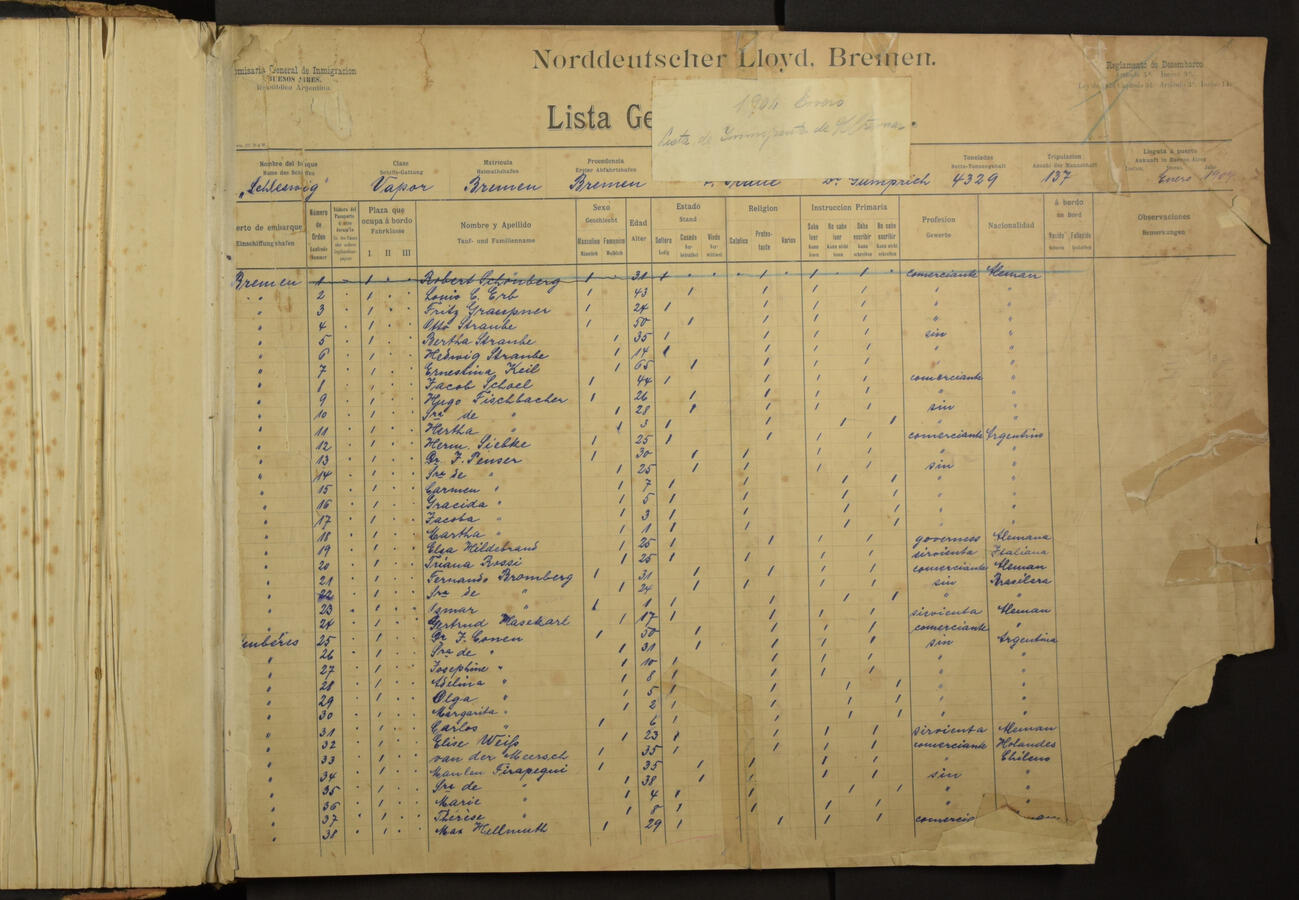 Norddeutscher Lloyd, Bremen.
General de Inmigracion
BUENOS AIRES.
República Argentina.
Reglamento de Desembarco
Lista Ge
Enero
Nombre del buque Clase Matricula Procedencia Toneladas Tripulacion Llegada á puerto
Name des Schiffes Schiffs-Gattung Heimathshafen Erster Abfahrtshafen Netto-Tonnengehalt Anzahl der Mannschaft Ankunft in Buenos Aires
„Schleswig" Vapor Bremen Bremen Dr. Gumprich 4329 137 Enero
erto de embarque Número de Orden Plaza que ocupa á bordo Nombre y Apellido Sexo Edad Estado Religion Instruccion Primaria Profesion Nacionalidad á bordo Observaciones
Einschiffungshafen Laufende Nummer Fahrklasse I II III Tauf- und Familienname Geschlecht Masculino Femenino Alter Stand Soltero Casado Viudo Catolica Protestante Varios Gewerbe an Bord Nacido Fallecido Bemerkungen
Bremen 1 1 Robert Schönberg 1 31 1 1 1 1 comerciante Aleman
" 2 1 Louis C. Erb 1 43 1 1 1 1 " "
" 3 1 Fritz Graupner 1 24 1 1 1 1 " "
" 4 1 Otto Straube 1 50 1 1 1 1 " "
" 5 1 Bertha Straube 1 35 1 1 1 1 sin "
" 6 1 Hedwig Straube 1 14 1 1 1 1 " "
" 7 1 Ernestina Keil 1 65 1 1 1 1 " "
" 8 1 Jacob Schoel 1 44 1 1 1 1 comerciante "
" 9 1 Hugo Fischbacher 1 26 1 1 1 1 " "
" 10 1 Sra de " 1 28 1 1 1 1 sin "
" 11 1 Hertha " 1 3 1 1 1 1 " "
" 12 1 Herm. Siebke 1 25 1 1 1 1 comerciante Argentino
" 13 1 Dr. F. Penser 1 30 1 1 1 1 " "
" 14 1 Sra de " 1 25 1 1 1 1 sin "
" 15 1 Carmen " 1 7 1 1 1 1 " "
" 16 1 Gracida " 1 5 1 1 1 1 " "
" 17 1 Jacoba " 1 3 1 1 1 1 " "
" 18 1 Martha " 1 1 1 1 1 1 " "
" 19 1 Elsa Hildebrand 1 25 1 1 1 1 governess Alemana
" 20 1 Triana Rossi 1 25 1 1 1 1 sirvienta Italiana
" 21 1 Fernando Bromberg 1 31 1 1 1 1 comerciante Aleman
" 22 1 Sra de " 1 24 1 1 1 1 sin Brasilera
" 23 1 Ismar " 1 1 1 1 1 1 " "
" 24 1 Gertrud Hasekarl 1 17 1 1 1 1 sirvienta Aleman
25 1 Dr F. Conen 1 50 1 1 1 1 comerciante "
" 26 1 Sra de " 1 31 1 1 1 1 sin Argentina
" 27 1 Josephine " 1 10 1 1 1 1 " "
" 28 1 Adelina " 1 8 1 1 1 1 " "
" 29 1 Olga " 1 5 1 1 1 1 " "
" 30 1 Margarita " 1 2 1 1 1 1 " "
" 31 1 Carlos " 1 6 1 1 1 1 " "
" 32 1 Elise Weiß 1 23 1 1 1 1 sirvienta Aleman
" 33 1 van der Meersch 1 35 1 1 1 1 comerciante Holandes
" 34 1 1 35 1 1 1 1 " Chileno
" 35 1 Sra de " 1 38 1 1 1 1 sin "
" 36 1 Marie " 1 4 1 1 1 1 " "
" 37 1 Thérèse " 1 8 1 1 1 1 " "
" 38 1 Max Hellmuth 1 29 1 1 1 1 comerci